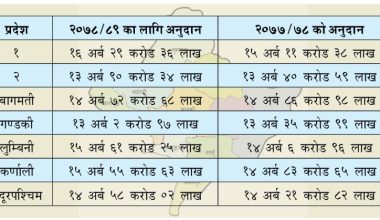 प्रदेश २०७८/८९ का लागि अनुदान २०७७/७८ को अनुदान
१ १६ अर्ब २९ करोड ३६ लाख १५ अर्ब ११ करोड ३८ लाख
२ १३ अर्ब ९० करोड ३४ लाख १३ अर्ब ४० करोड ५९ लाख
बागमती १४ अर्ब ७२ करोड ६८ लाख १४ अर्ब ८६ करोड ९८ लाख
गण्डकी १३ अर्ब २ करोड ९७ लाख १३ अर्ब ३५ करोड ९९ लाख
लुम्बिनी १५ अर्ब ६१ करोड २५ लाख १४ अर्ब ६ करोड ९६ लाख
कर्णाली १५ अर्ब ५५ करोड ६३ लाख १४ अर्ब ८३ करोड ६५ लाख
दूरपश्चिम १४ अर्ब ५८ करोड ०२ लाख १४ अर्ब २१ करोड ८२ लाख